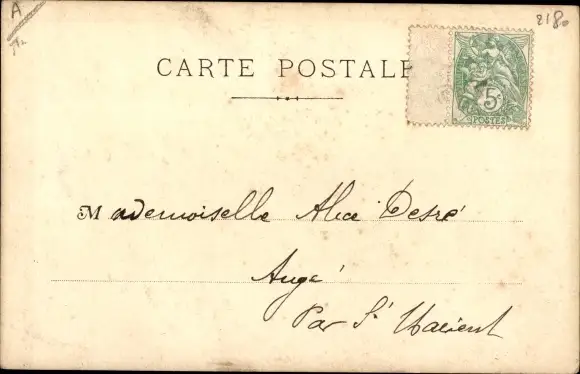 A
2180
CARTE POSTALE
5c
POSTES
Mademoiselle Alice Desré
Augé
Par St